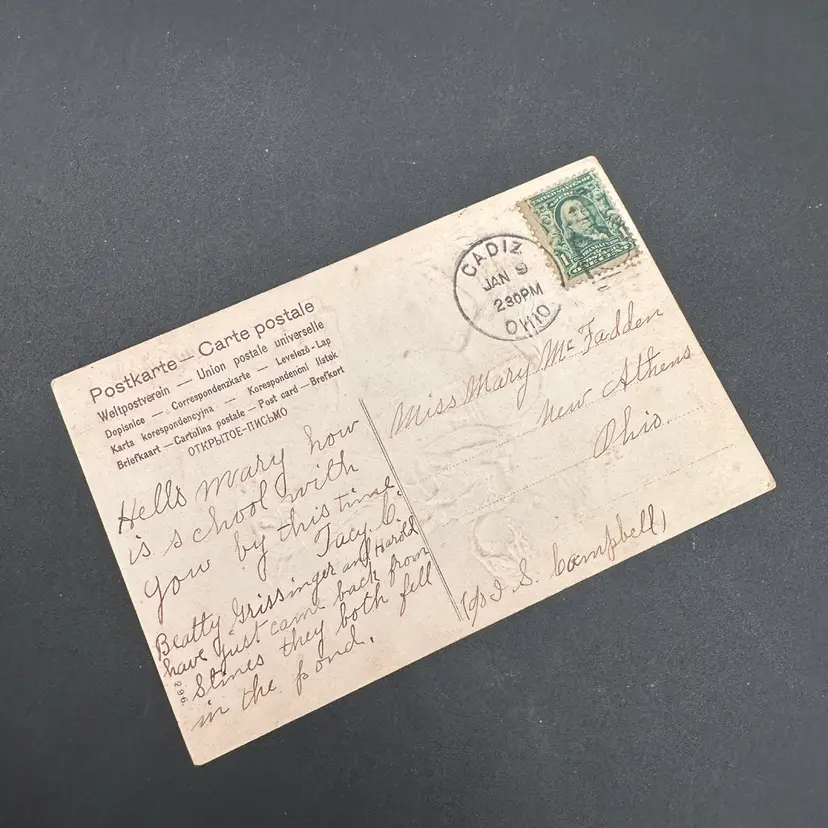 Postkarte — Carte postale
Weltpostverein — Union postale universelle
Dopisnice — Correspondenzkarte — Levelező-Lap
Karta korespondencyjna — Korespondencní lístek
Briefkaart — Cartolina postale — Post card — Brefkort
ОТКРЫТОЕ-ПИСЬМО
Hello mary how
is school with
you by this time
Tacy C.
Beatty Grissinger and Harold
have just came back from
Stines they both fell
in the pond.
296
CADIZ
JAN 9
230PM
OHIO
1
Miss Mary McFadden
New Athens
Ohio.
(c/o I. S. Campbell)